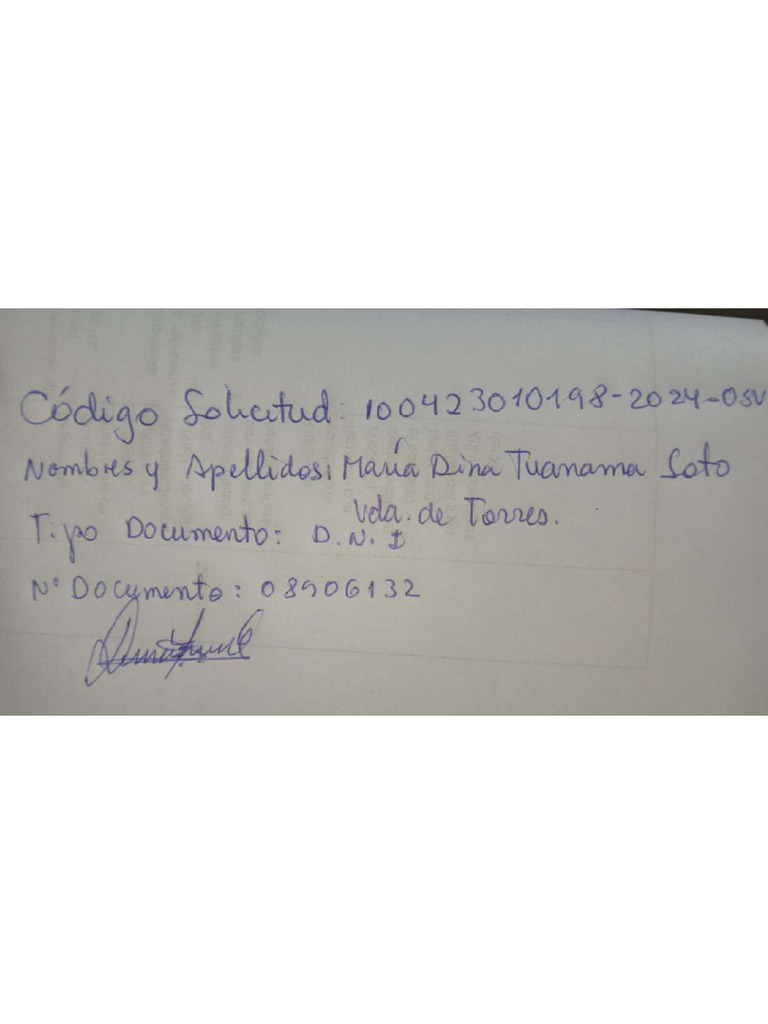 Código Solicitud: 100423010198-2024-OSU
Nombres y Apellidos: María Dina Tuanama Soto
Vda. de Torres.
Tipo Documento: D.N.I
N° Documento: 08906132